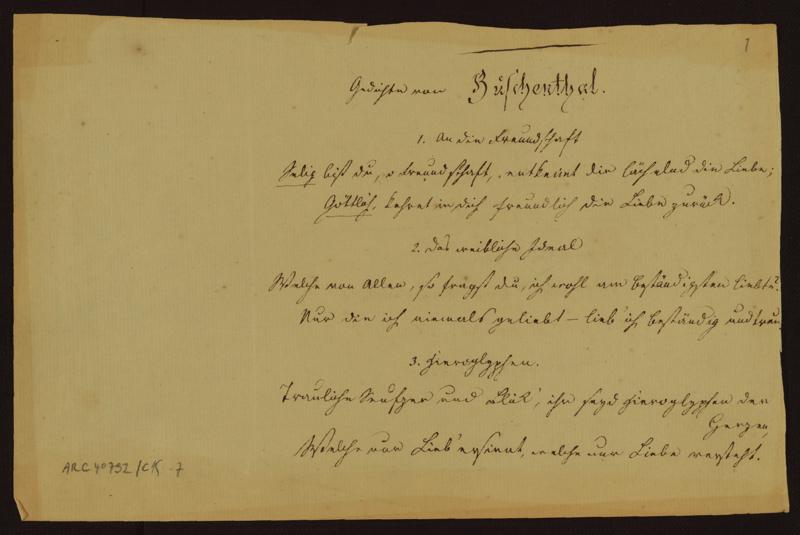 1
Gedichte von Buschenthal.
1. An die Freundschaft
Selig bist du, o Freundschaft, entkeimt dir lächelnd die Liebe;
Göttlich, kehret in dich freundlich die Liebe zurück.
2. Das weibliche Ideal
Welche von Allen, so fragst du, ich wohl am beständigsten liebte?
Nur die ich niemals geliebt – lieb' ich beständig und treu
3. Hieroglyphen.
Trauliche Seufzer und Blick', ihr seyd Hieroglyphen der
Herzen,
Welche nur Lieb' ersinnt, welche nur Liebe versteht.
ARC 4° 792 / CK 7